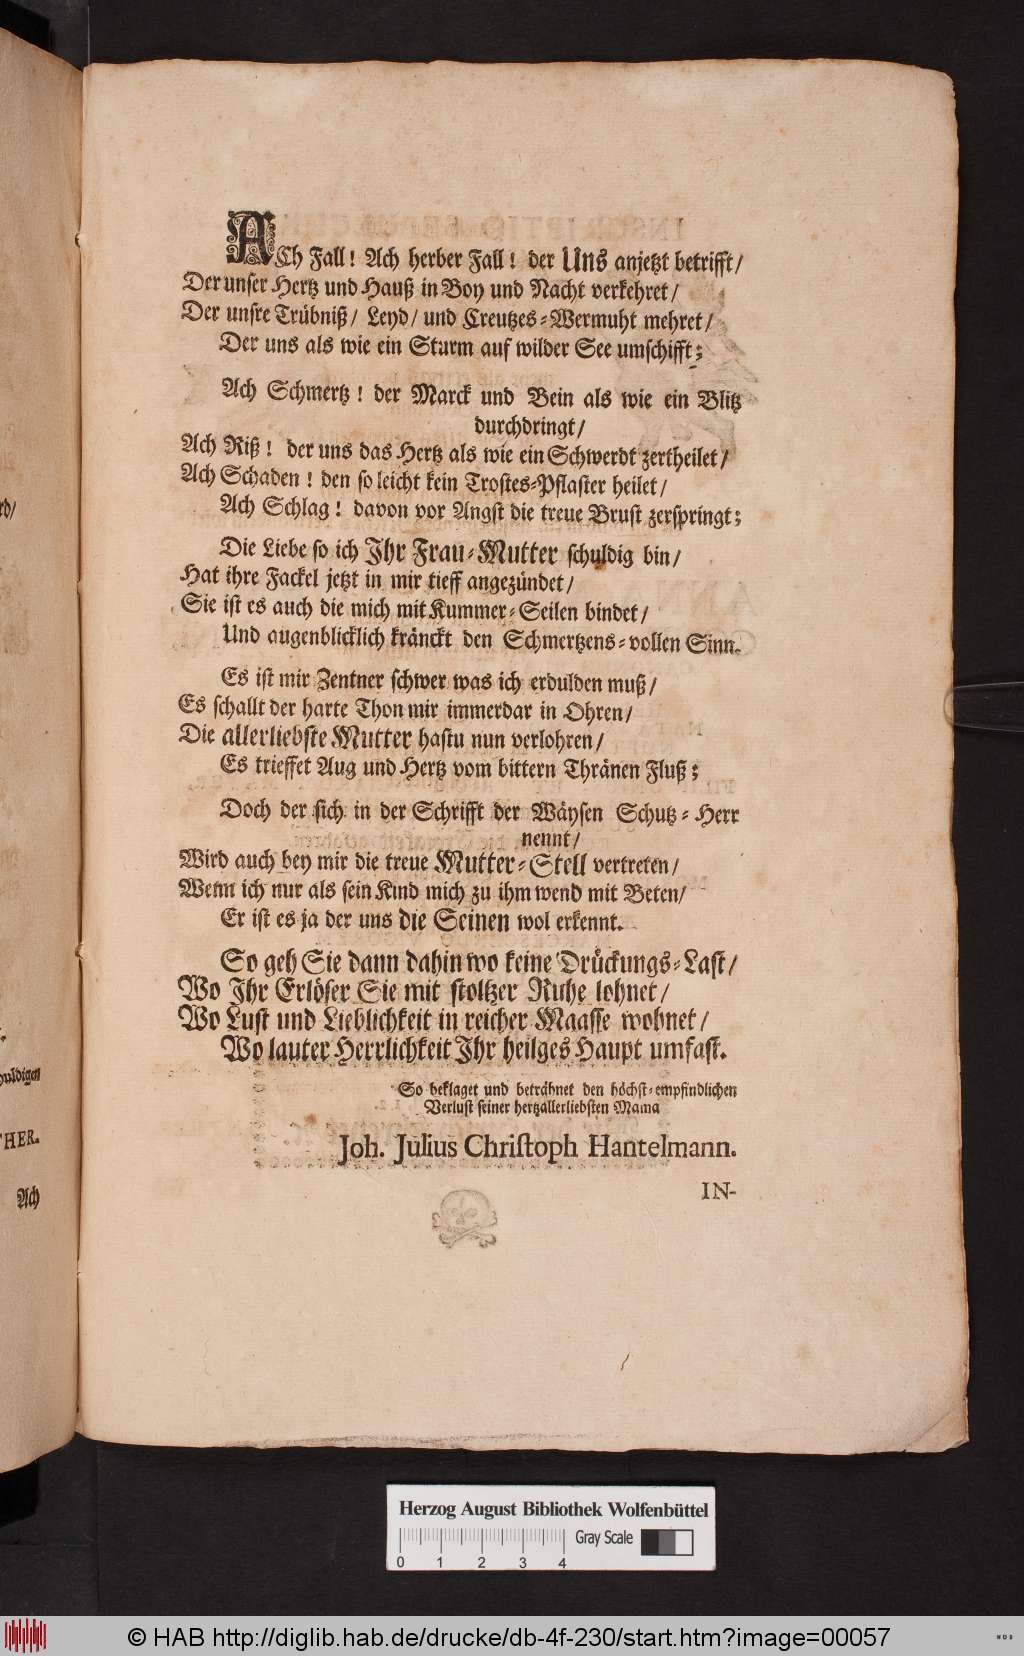 ACh Fall! Ach herber Fall! der Uns anjetzt betrifft/
Der unser Hertz und Hauß in Boy und Nacht verkehret/
Der unsre Trübniß/ Leyd/ und Creutzes-Wermuht mehret/
Der uns als wie ein Sturm auf wilder See umschifft;
Ach Schmertz! der Marck und Bein als wie ein Blitz
durchdringt/
Ach Riß! der uns das Hertz als wie ein Schwerdt zertheilet/
Ach Schaden! den so leicht kein Trostes-Pflaster heilet/
Ach Schlag! davon vor Angst die treue Brust zerspringt;
Die Liebe so ich Ihr Frau-Mutter schuldig bin/
Hat ihre Fackel jetzt in mir tieff angezündet/
Sie ist es auch die mich mit Kummer-Seilen bindet/
Und augenblicklich kränckt den Schmertzens-vollen Sinn.
Es ist mir Zentner schwer was ich erdulden muß/
Es schallt der harte Thon mir immerdar in Ohren/
Die allerliebste Mutter hastu nun verlohren/
Es trieffet Aug und Hertz vom bittern Thränen Fluß;
Doch der sich in der Schrifft der Wäysen Schutz-Herr
nennt/
Wird auch bey mir die treue Mutter-Stell vertreten/
Wenn ich nur als sein Kind mich zu ihm wend mit Beten/
Er ist es ja der uns die Seinen wol erkennt.
So geh Sie dann dahin wo keine Drückungs-Last/
Wo Ihr Erlöser Sie mit stoltzer Ruhe lohnet/
Wo Lust und Lieblichkeit in reicher Maasse wohnet/
Wo lauter Herrlichkeit Ihr heilges Haupt umfast.
So beklaget und beträhnet den höchst-empfindlichen
Verlust seiner hertzallerliebsten Mama
Joh. Julius Christoph Hantelmann.
IN-
rd/
huldigen
THER.
Ach
Herzog August Bibliothek Wolfenbüttel
0 1 2 3 4 Gray Scale
© HAB http://diglib.hab.de/drucke/db-4f-230/start.htm?image=00057